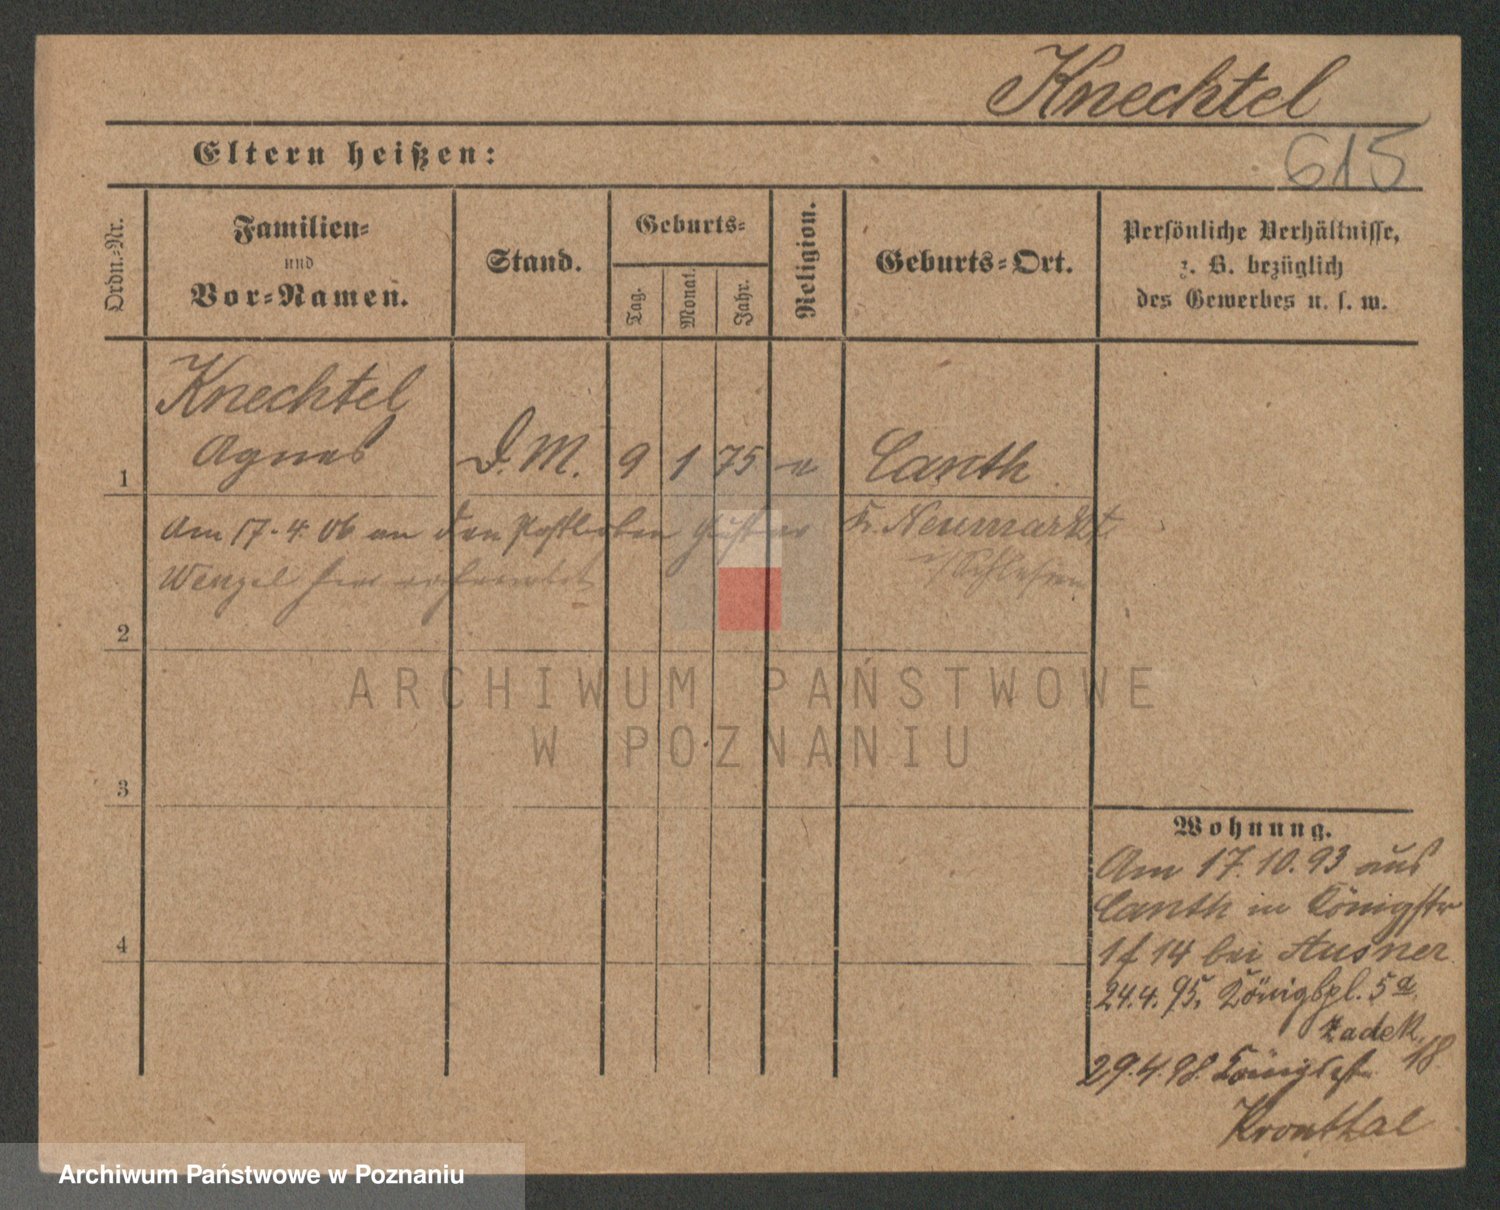 Knechtel
615
Eltern heißen:
Ordn.-Nr.
Familien-
und
Vor-Namen.
Stand.
Geburts-
Tag.
Monat.
Jahr.
Religion.
Geburts-Ort.
Persönliche Verhältnisse,
z. B. bezüglich
des Gewerbes u. s. w.
1
Knechtel
Agnes
D. M.
9
1
75
Canth
Kr. Neumarkt
i/Schlesien
Am 17.4.06 an den Postboten Gustav
Wenzel hier verheiratet
2
3
4
Wohnung.
Am 17.10.93 aus
Canth in Königstr
14 bei Ausner
24.4.95. Königspl. 5a
Zadek
29.4.98. Königsstr 18
Kronthal
ARCHIWUM PAŃSTWOWE
W POZNANIU
Archiwum Państwowe w Poznaniu